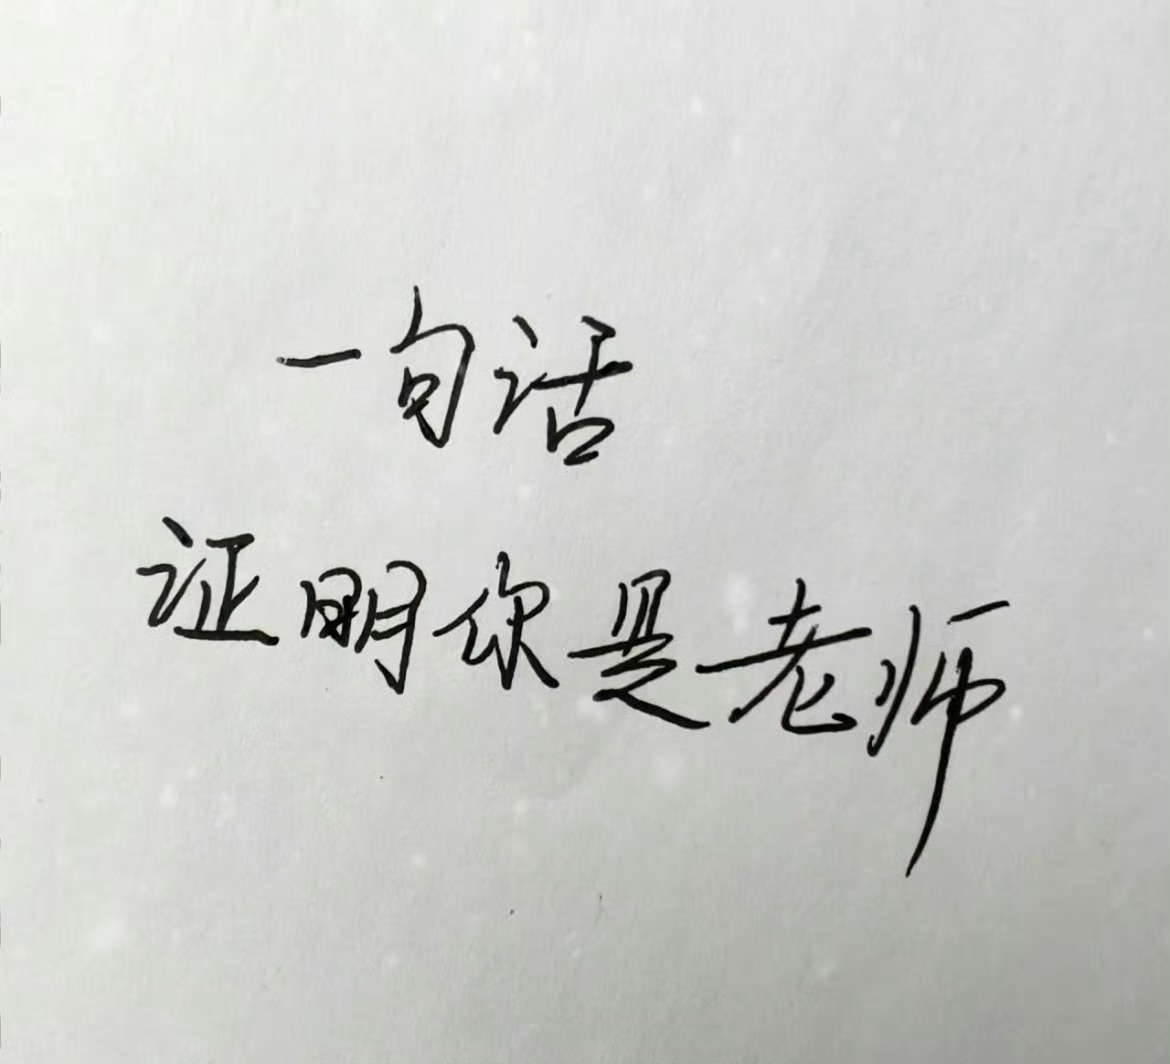 一句话
证明你是老师